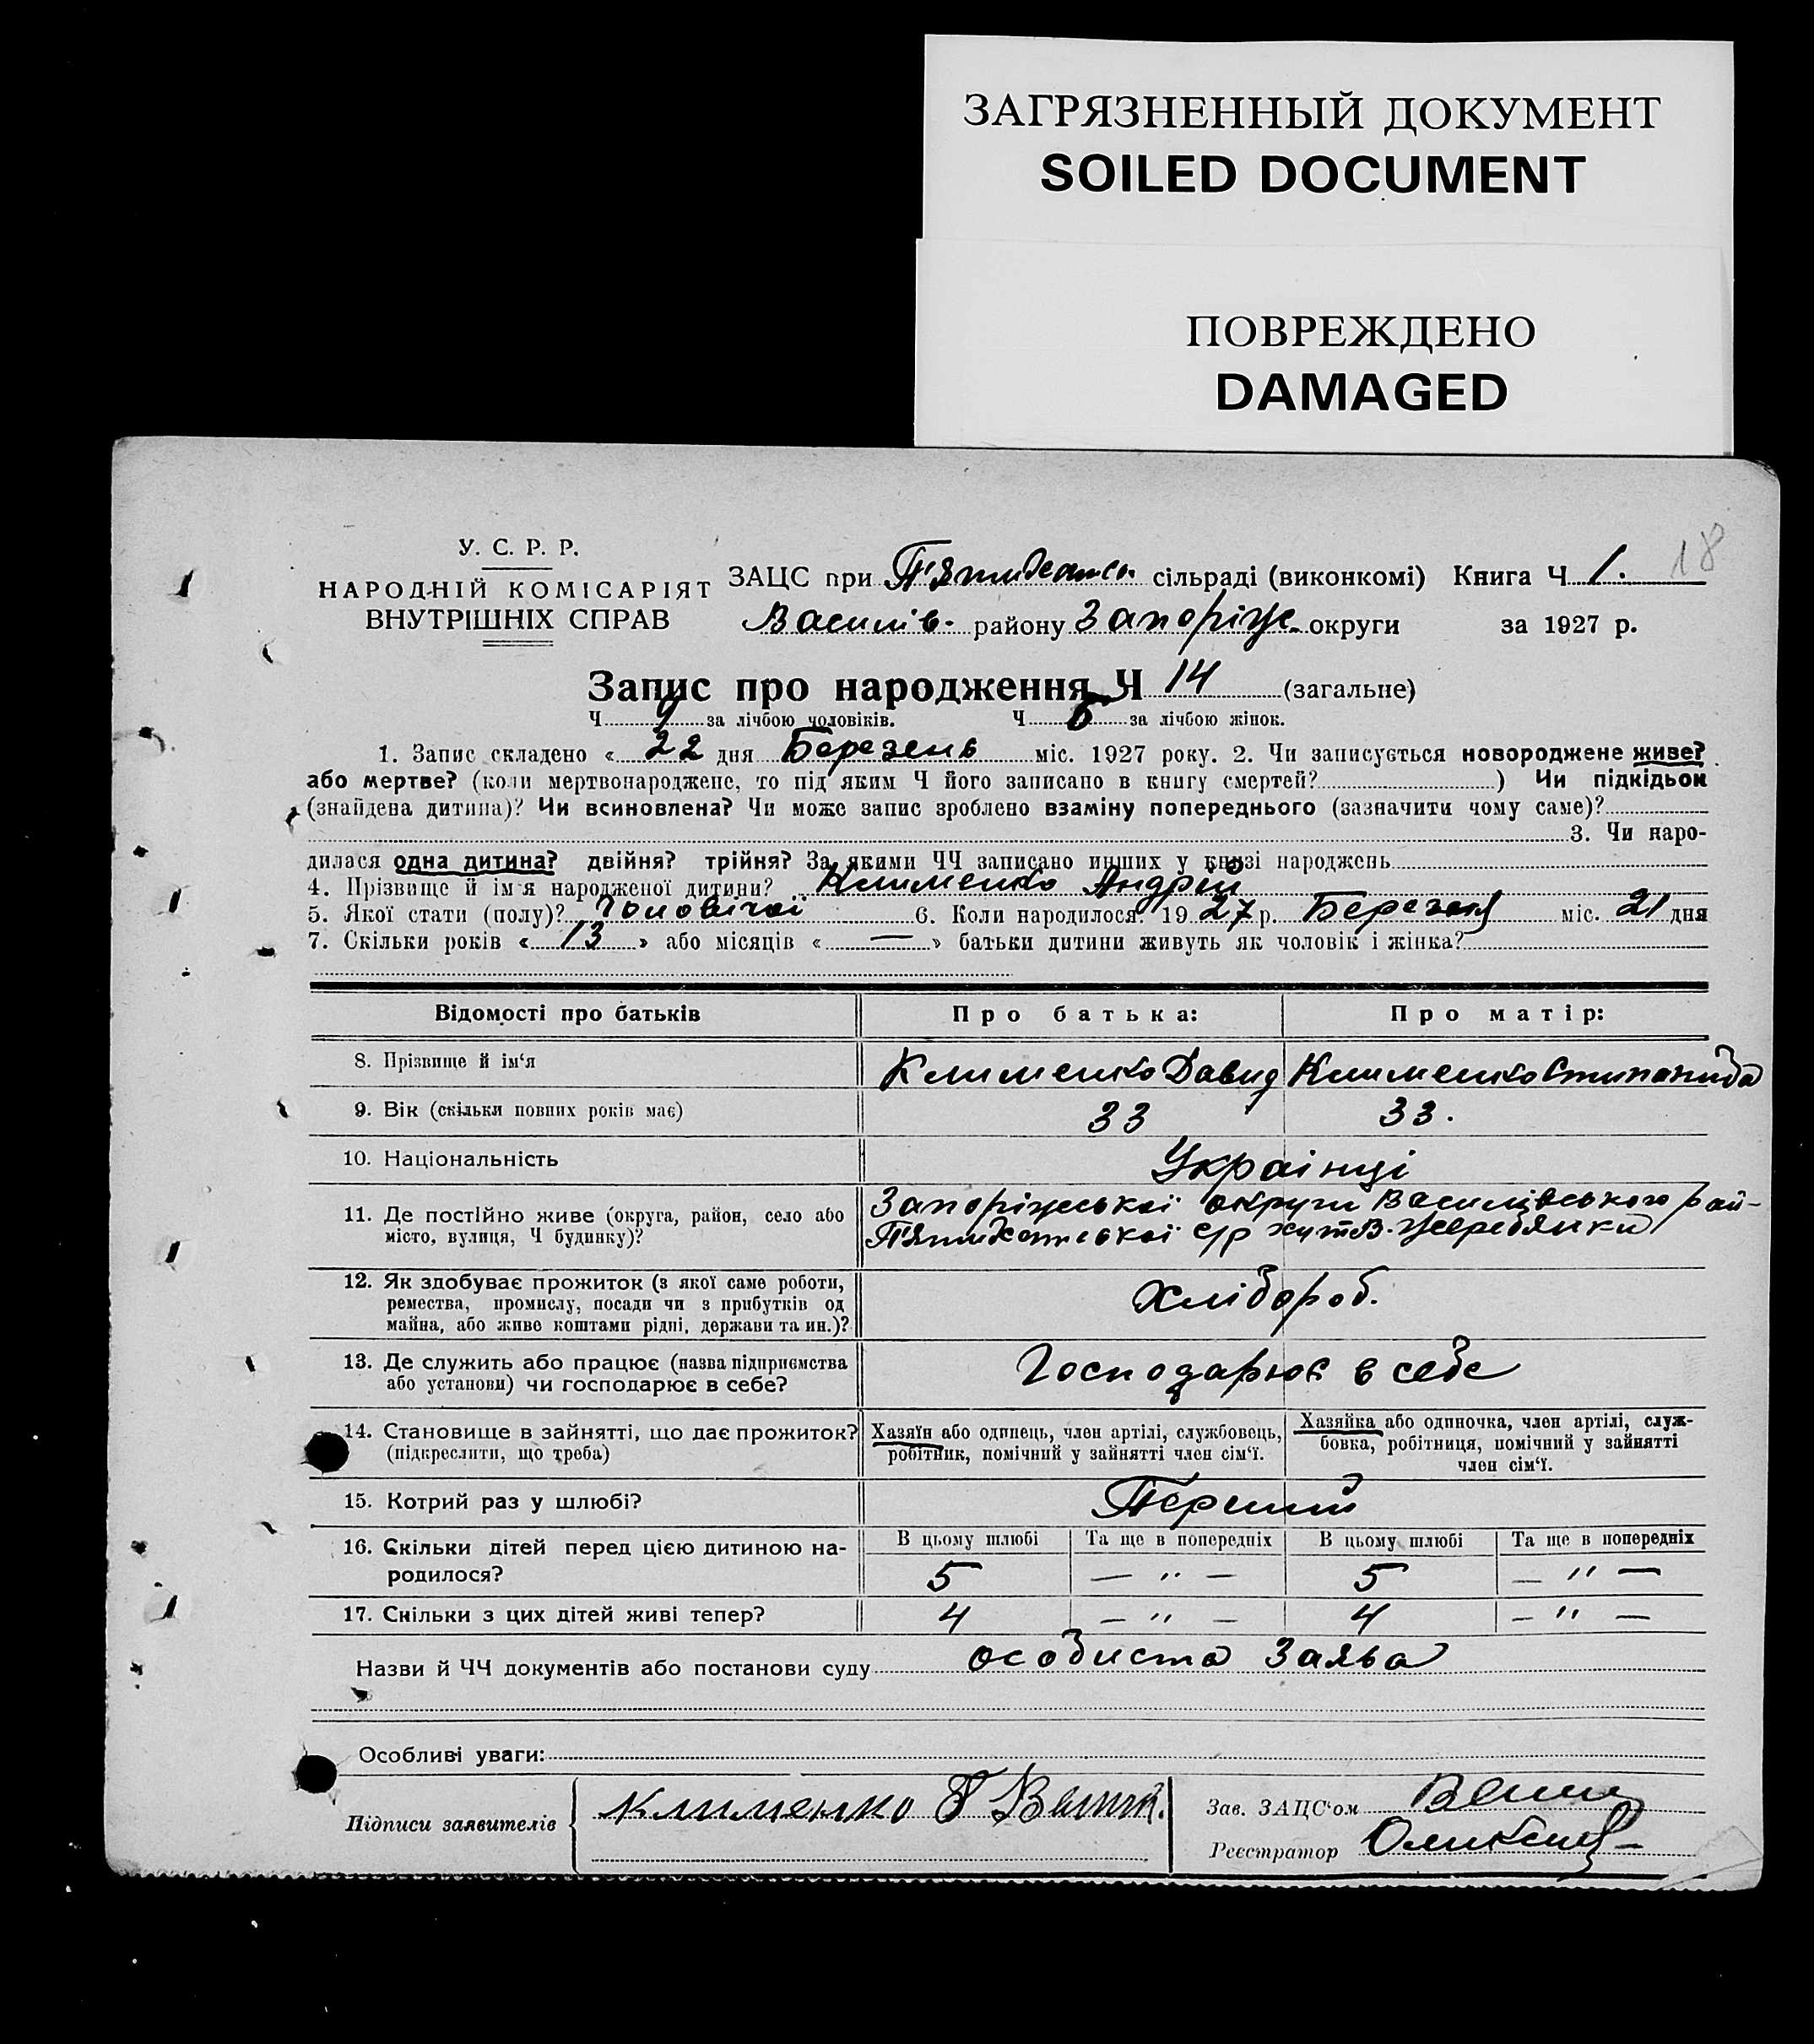 ЗАГРЯЗНЕННЫЙ ДОКУМЕНТ
SOILED DOCUMENT
ПОВРЕЖДЕНО
DAMAGED
18
У. С. Р. Р.
НАРОДНІЙ КОМІСАРІЯТ
ВНУТРІШНІХ СПРАВ
ЗАЦС при П'ятихатсь. сільраді (виконкомі) Книга Ч 1.
Василів. району Запоріж. округи за 1927 р.
Запис про народження Ч 14 (загальне)
Ч 9 за лічбою чоловіків. Ч 5 за лічбою жінок.
1. Запис складено « 22 дня Березень міс. 1927 року. 2. Чи записується новороджене живе?
або мертве? (коли мертвонароджене, то під яким Ч його записано в книгу смертей? ) Чи підкідьок
(знайдена дитина)? Чи всиновлена? Чи може запис зроблено взаміну попереднього (зазначити чому саме)?
3. Чи наро-
дилася одна дитина? двійня? трійня? За якими ЧЧ записано инших у книзі народжень
4. Прізвище й ім'я народженої дитини? Клименко Андрій
5. Якої стати (полу)? Чоловічої 6. Коли народилося? 1927 р. Березня міс. 21 дня
7. Скільки років « 13 » або місяців « — » батьки дитини живуть як чоловік і жінка?
Відомості про батьків Про батька: Про матір:
8. Прізвище й ім'я Клименко Давид Клименко Стипанида
9. Вік (скільки повних років має) 33 33.
10. Національність Українці
11. Де постійно живе (округа, район, село або Запоріжської округи Василівського рай-
місто, вулиця, Ч будинку)? П'ятихатської с/р хут В. Жеребянки
12. Як здобуває прожиток (з якої саме роботи,
ремества, промислу, посади чи з прибутків од Хлібороб.
майна, або живе коштами рідні, держави та ин.)?
13. Де служить або працює (назва підприємства
або установи) чи господарює в себе? Господарює в себе
14. Становище в зайнятті, що дає прожиток? Хазяїн або одинець, член артілі, службовець, Хазяйка або одиночка, член артілі, служ-
(підкреслити, що треба) робітник, помічний у зайнятті член сім'ї. бовка, робітниця, помічний у зайнятті
член сім'ї.
15. Котрий раз у шлюбі? Перший
16. Скільки дітей перед цією дитиною на- В цьому шлюбі Та ще в попередніх В цьому шлюбі Та ще в попередніх
родилося? 5 — " — 5 — " —
17. Скільки з цих дітей живі тепер? 4 — " — 4 — " —
Назви й ЧЧ документів або постанови суду особиста Заява
Особливі уваги:
Підписи заявителів Клименко
Зав. ЗАЦС'ом
Реєстратор